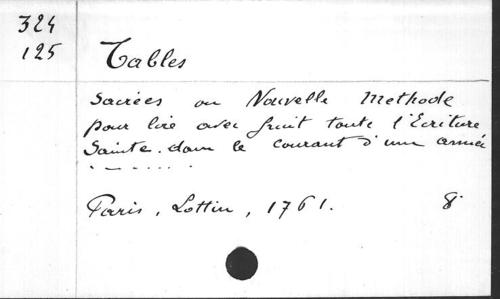 324
125
Tables
Sacrées ou Nouvelle Methode
pour lire avec fruit toute l'Ecriture
Sainte. dans le courant d'une année
. - . . . . .
Paris, Lottin, 1761. 8°